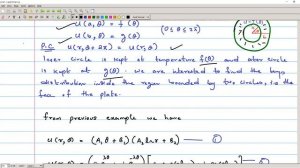 u(a,θ) = f(θ)
u(r,θ) = g(θ) (0≤θ≤2π)
P.C. u(r,θ+2π) = u(r,θ)
inner circle is kept at temperature f(θ) and outer circle
is kept at g(θ). we are interested to find the temp
distribution inside the region bounded by two circles, to the
face of the plate.
from previous example we have
u(r,θ) = (A₁θ+B₁)(A₂ln r+B₂) — ①